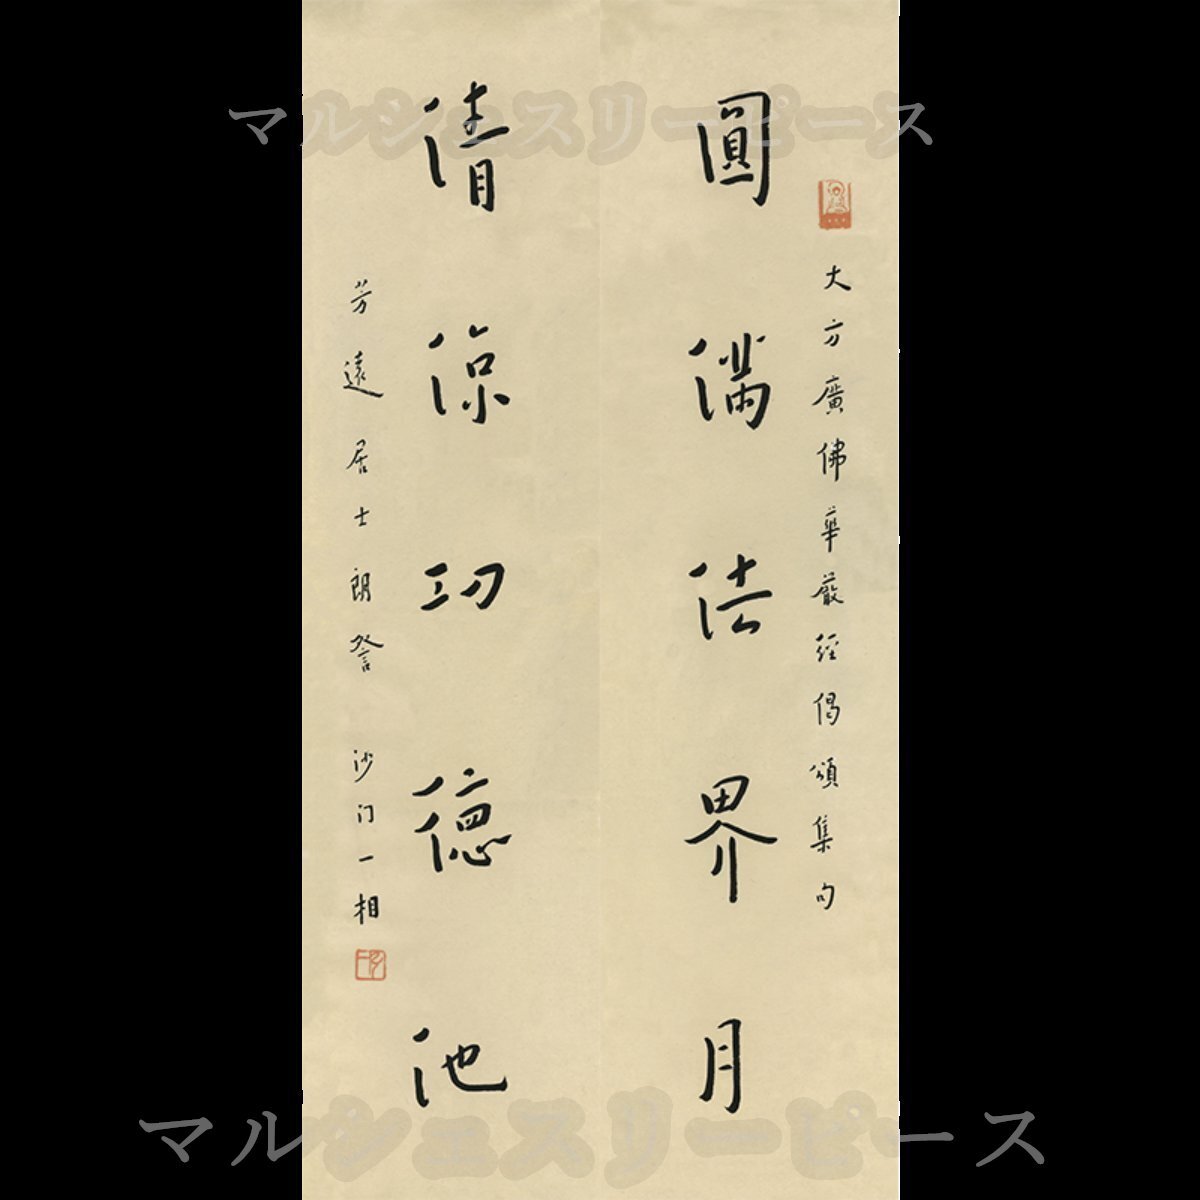 マルシェスリーピース
大方廣佛華嚴經偈頌集句
圓滿法界月
清涼功德池
芳遠居士朗詧 沙门一相
マルシェスリーピース